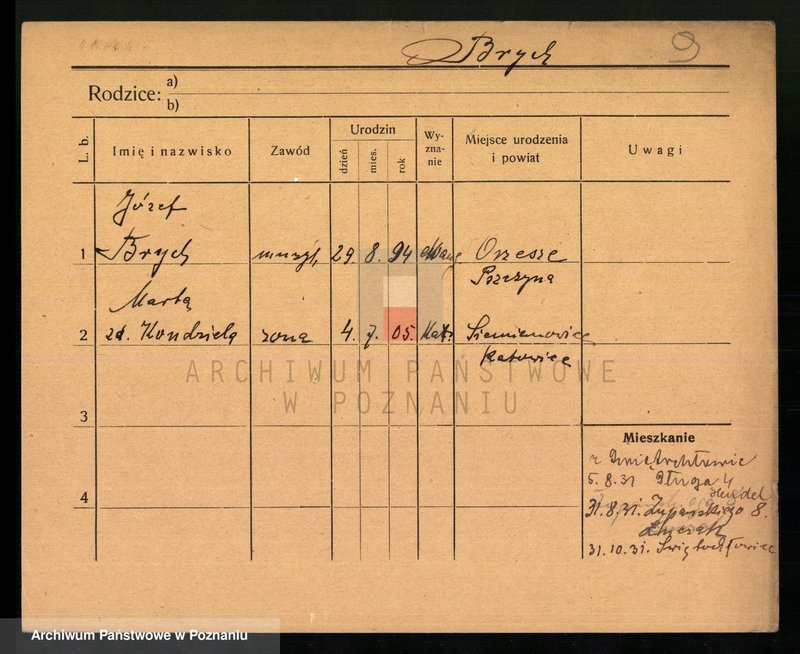 Brych 9
Rodzice: a)
b)
L. b. Imię i nazwisko Zawód Urodzin dzień mies. rok Wy-zna-nie Miejsce urodzenia i powiat Uwagi
Józef
1 Brych muzyk 29. 8. 94 Orzesze
Pszczyna
Marta
2 zd. Kondziela żona 4. 7. 05. Kat. Siemianowice
Katowice
ARCHIWUM PAŃSTWOWE
W POZNANIU
3
Mieszkanie
z Świętochłowic
5.8.31 Długa 4
4
31.8.31. Żupańskiego 8.
31.10.31. Świętochłowice
Archiwum Państwowe w Poznaniu